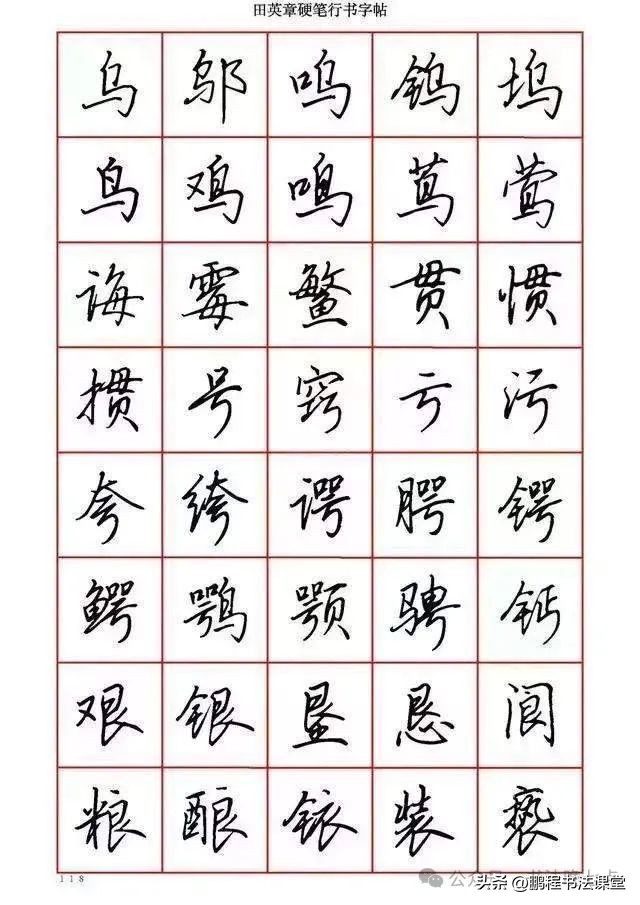 田英章硬笔行书字帖
乌 邬 呜 钨 坞
鸟 鸡 鸣 茑 莺
诲 霉 鳘 贯 惯
掼 号 窍 亏 污
夸 绔 谔 腭 锷
鳄 鹗 颚 骋 钙
艰 银 垦 恳 阆
粮 酿 铱 装 亵
118
公众号
头条@鹏程书法课堂